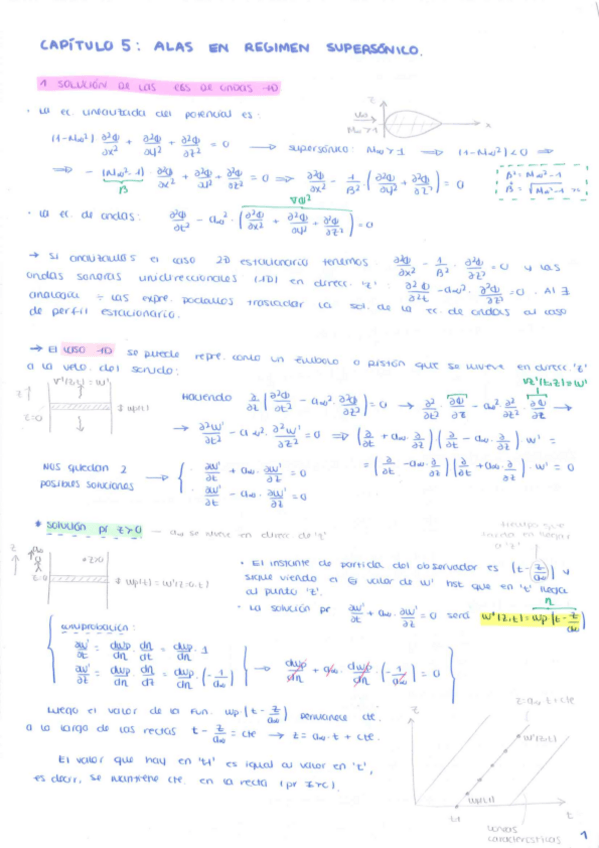 CAPÍTULO 5: ALAS EN REGIMEN SUPERSÓNICO.
1 SOLUCIÓN DE LAS ECS DE ONDAS 1D
· La ec. linealizada del potencial es:
(1-M∞²) ∂²Φ/∂x² + ∂²Φ/∂y² + ∂²Φ/∂z² = 0 → supersónico: M∞>1 ⇒ (1-M∞²)<0 ⇒
⇒ - (M∞²-1) · ∂²Φ/∂x² + ∂²Φ/∂y² + ∂²Φ/∂z² = 0 ⇒ ∂²Φ/∂x² - 1/β² · (∂²Φ/∂y² + ∂²Φ/∂z²) = 0
β
β² = M∞²-1
· La ec. de ondas: ∂²Φ/∂t² - a∞² · (∂²Φ/∂x² + ∂²Φ/∂y² + ∂²Φ/∂z²) = 0
→ Si analizamos el caso 2D estacionario tenemos: ∂²Φ/∂x² - 1/β² · ∂²Φ/∂z² = 0 y las
ondas sonoras unidireccionales (1D) en direcc. 'z': ∂²Φ/∂²t - a∞² · ∂²Φ/∂z² = 0 . Al ∃
analogía ÷ las expre. podamos trasladar la sol. de la ec. de ondas al caso
de perfil estacionario.
→ El caso 1D se puede repre. como un émbolo o pistón que se mueve en direcc. 'z'
a la velo. del sonido:
z
z=0
Haciendo ∂/∂z [∂²Φ/∂t² - a∞² · ∂²Φ/∂z²] = 0 →
→ ∂²w'/∂t² - a∞² · ∂²w'/∂z² = 0 ⇒ (∂/∂t + a∞ · ∂/∂z)(∂/∂t - a∞ · ∂/∂z) w' =
= (∂/∂t - a∞ · ∂/∂z)(∂/∂t + a∞ · ∂/∂z) · w' = 0
Nos quedan 2
posibles soluciones
∂w'/∂t + a∞ · ∂w'/∂z = 0
∂w'/∂t - a∞ · ∂w'/∂z = 0
* Solución pr z>0 — a∞ se mueve en direcc. de 'z'
z
z>0
z=0
wp(t) = w'(z=0,t)
· El instante de partida del observador es (t - z/a∞) y
sigue viendo el valor de w' hst que en 't' llega
al punto 'z'.
· La solución pr ∂w'/∂t + a∞ · ∂w'/∂z = 0 será w'(z,t) = wp(t - z/a∞)
η
comprobación:
∂w'/∂t = dwp/dη · dη/dt = dwp/dη · 1
∂w'/∂z = dwp/dη · dη/dz = dwp/dη · (-1/a∞)
→ dwp/dη + a∞ · dwp/dη · (-1/a∞) = 0
Luego el valor de la fun. wp(t - z/a∞) permanece cte.
a lo largo de las rectas t - z/a∞ = cte → z = a∞ · t + cte.
El valor que hay en 't1' es igual al valor en 't',
es decir, se mantiene cte. en la recta
z = a∞ t + cte
z
t1
t
características
1